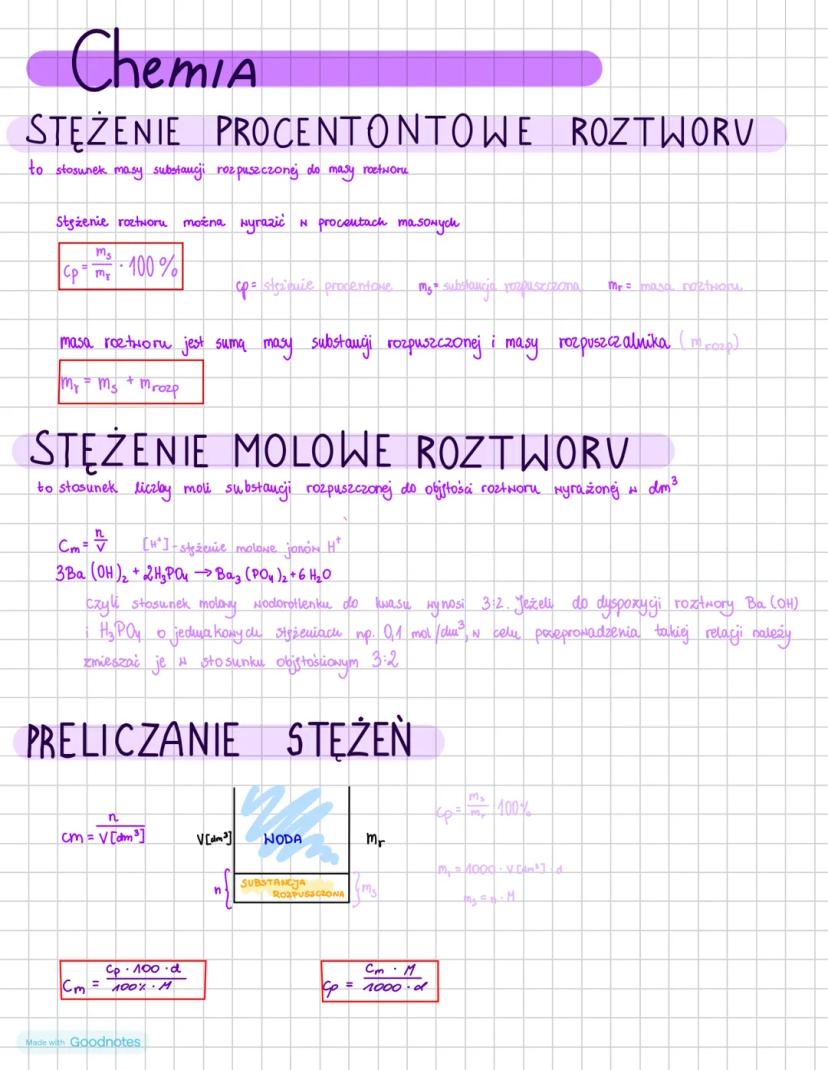 Chemia
STĘŻENIE PROCENTONTOWE ROZTWORU
to stosunek masy substancji rozpuszczonej do masy roztworu
Stężenie roztworu można wyrazić w procentach masowych
Cp = ms/mr · 100%
cp = stężenie procentowe ms = substancja rozpuszczona mr = masa roztworu
masa roztworu jest sumą masy substancji rozpuszczonej i masy rozpuszczalnika (mrozp)
mr = ms + mrozp
STĘŻENIE MOLOWE ROZTWORU
to stosunek liczby moli substancji rozpuszczonej do objętości roztworu wyrażonej w dm³
Cm = n/V [H⁺] - stężenie molowe jonów H⁺
3Ba(OH)₂ + 2H₃PO₄ → Ba₃(PO₄)₂ + 6H₂O
czyli stosunek molowy wodorotlenku do kwasu wynosi 3:2. Jeżeli do dyspozycji roztwory Ba(OH)
i H₃PO₄ o jednakowych stężeniach np. 0,1 mol/dm³, w celu przeprowadzenia takiej relacji należy
zmieszać je w stosunku objętościowym 3:2
PRELICZANIE STĘŻEŃ
cm = n/V[dm³]
V[dm³]
WODA
mr
n
SUBSTANCJA
ROZPUSZCZONA
ms
cp = ms/mr · 100%
mr = 1000 · V[dm³] · d
ms = n · M
Cm = Cp · 100 · d / 100% · M
cp = Cm · M / 1000 · d
Made with Goodnotes